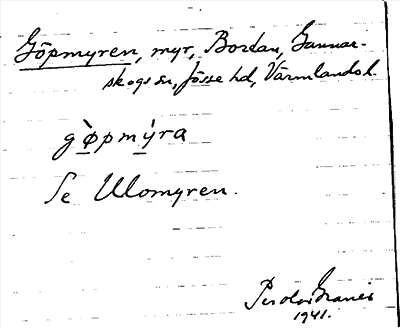 Göpmyren, myr, Bordan, Gunnar-
skogs sn, Jösse hd, Värmlands l.
gø̀pmýra
Se Ulomyren.
Perolov Granér
1941.